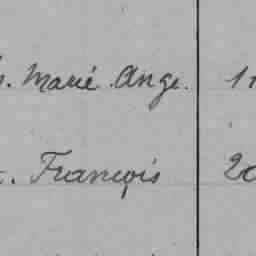 . Marié Ange. 1
. François 20